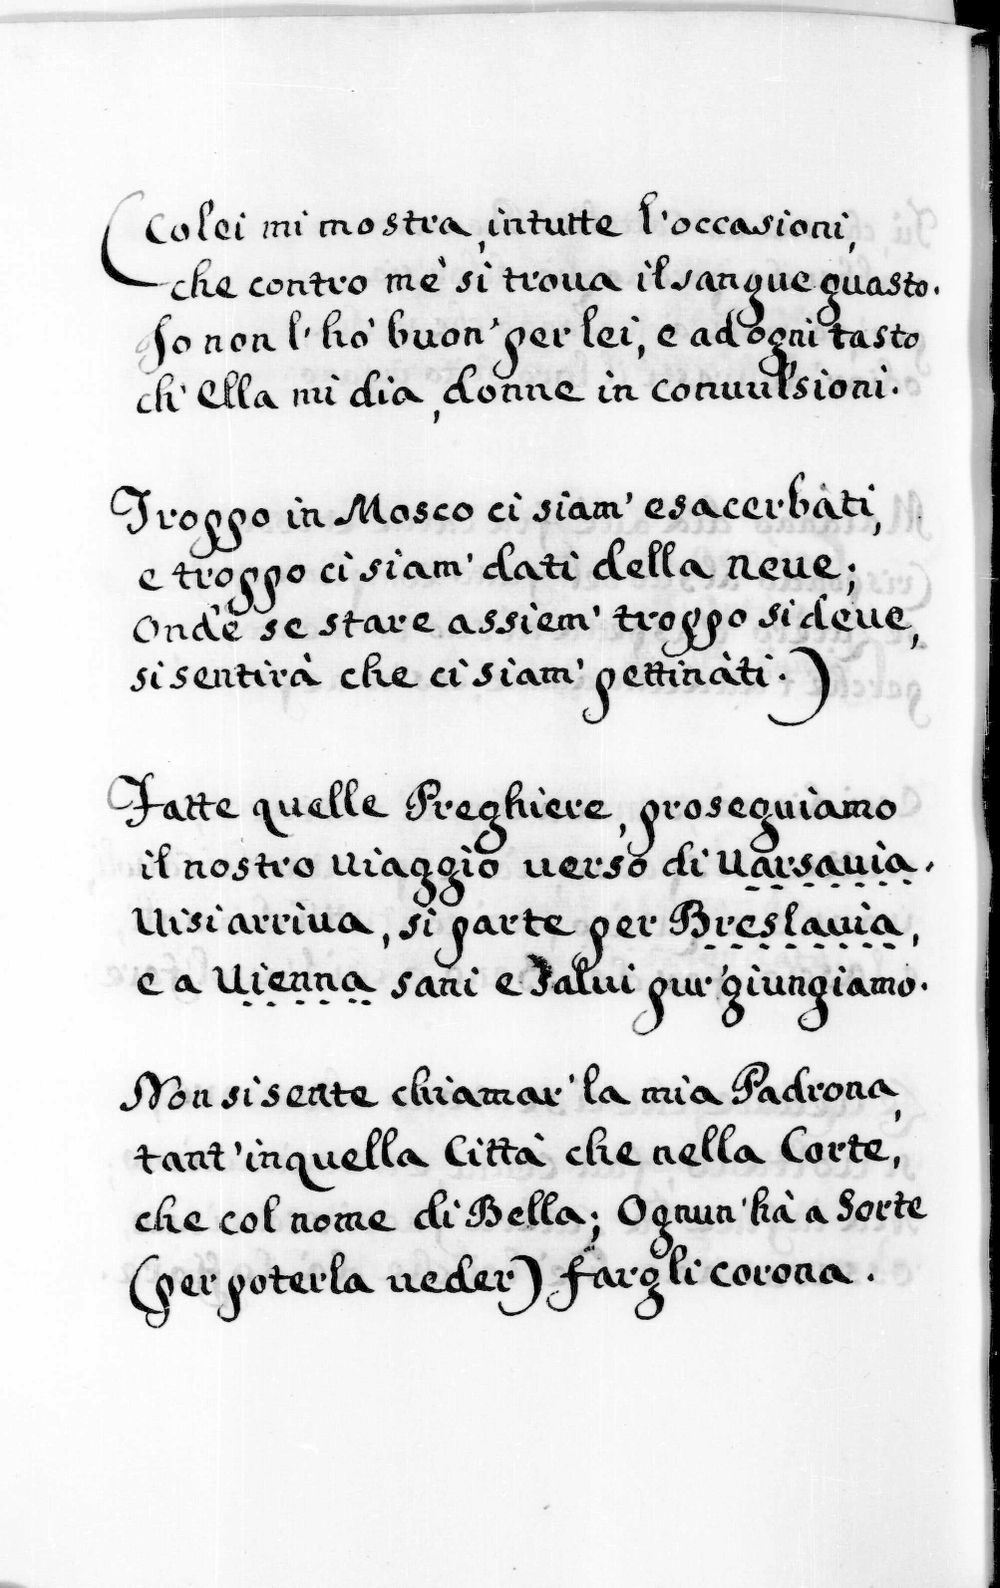 (Colei mi mostra, in tutte l'occasioni,
che contro mè si troua il sangue guasto.
Io non l'hò buon' per lei, e ad ogni tasto
ch'ella mi dia, donne in conuulsioni.
Troppo in Mosco ci siam' esacerbàti,
e troppo ci siam' dati della neue;
Ond'è se stare assiem' troppo si deue,
si sentirà che ci siam' pettinàti.)
Fatte quelle Preghiere, proseguiamo
il nostro uiaggio uerso di Uarsauia.
Ui si arriua, si parte per Breslauia,
e a Uienna sani e salui pur' giungiamo.
Non si sente chiamar' la mia Padrona,
tant' in quella Città che nella Corte,
che col nome di Bella; Ognun' hà a Sorte
(per poterla ueder) fargli corona.